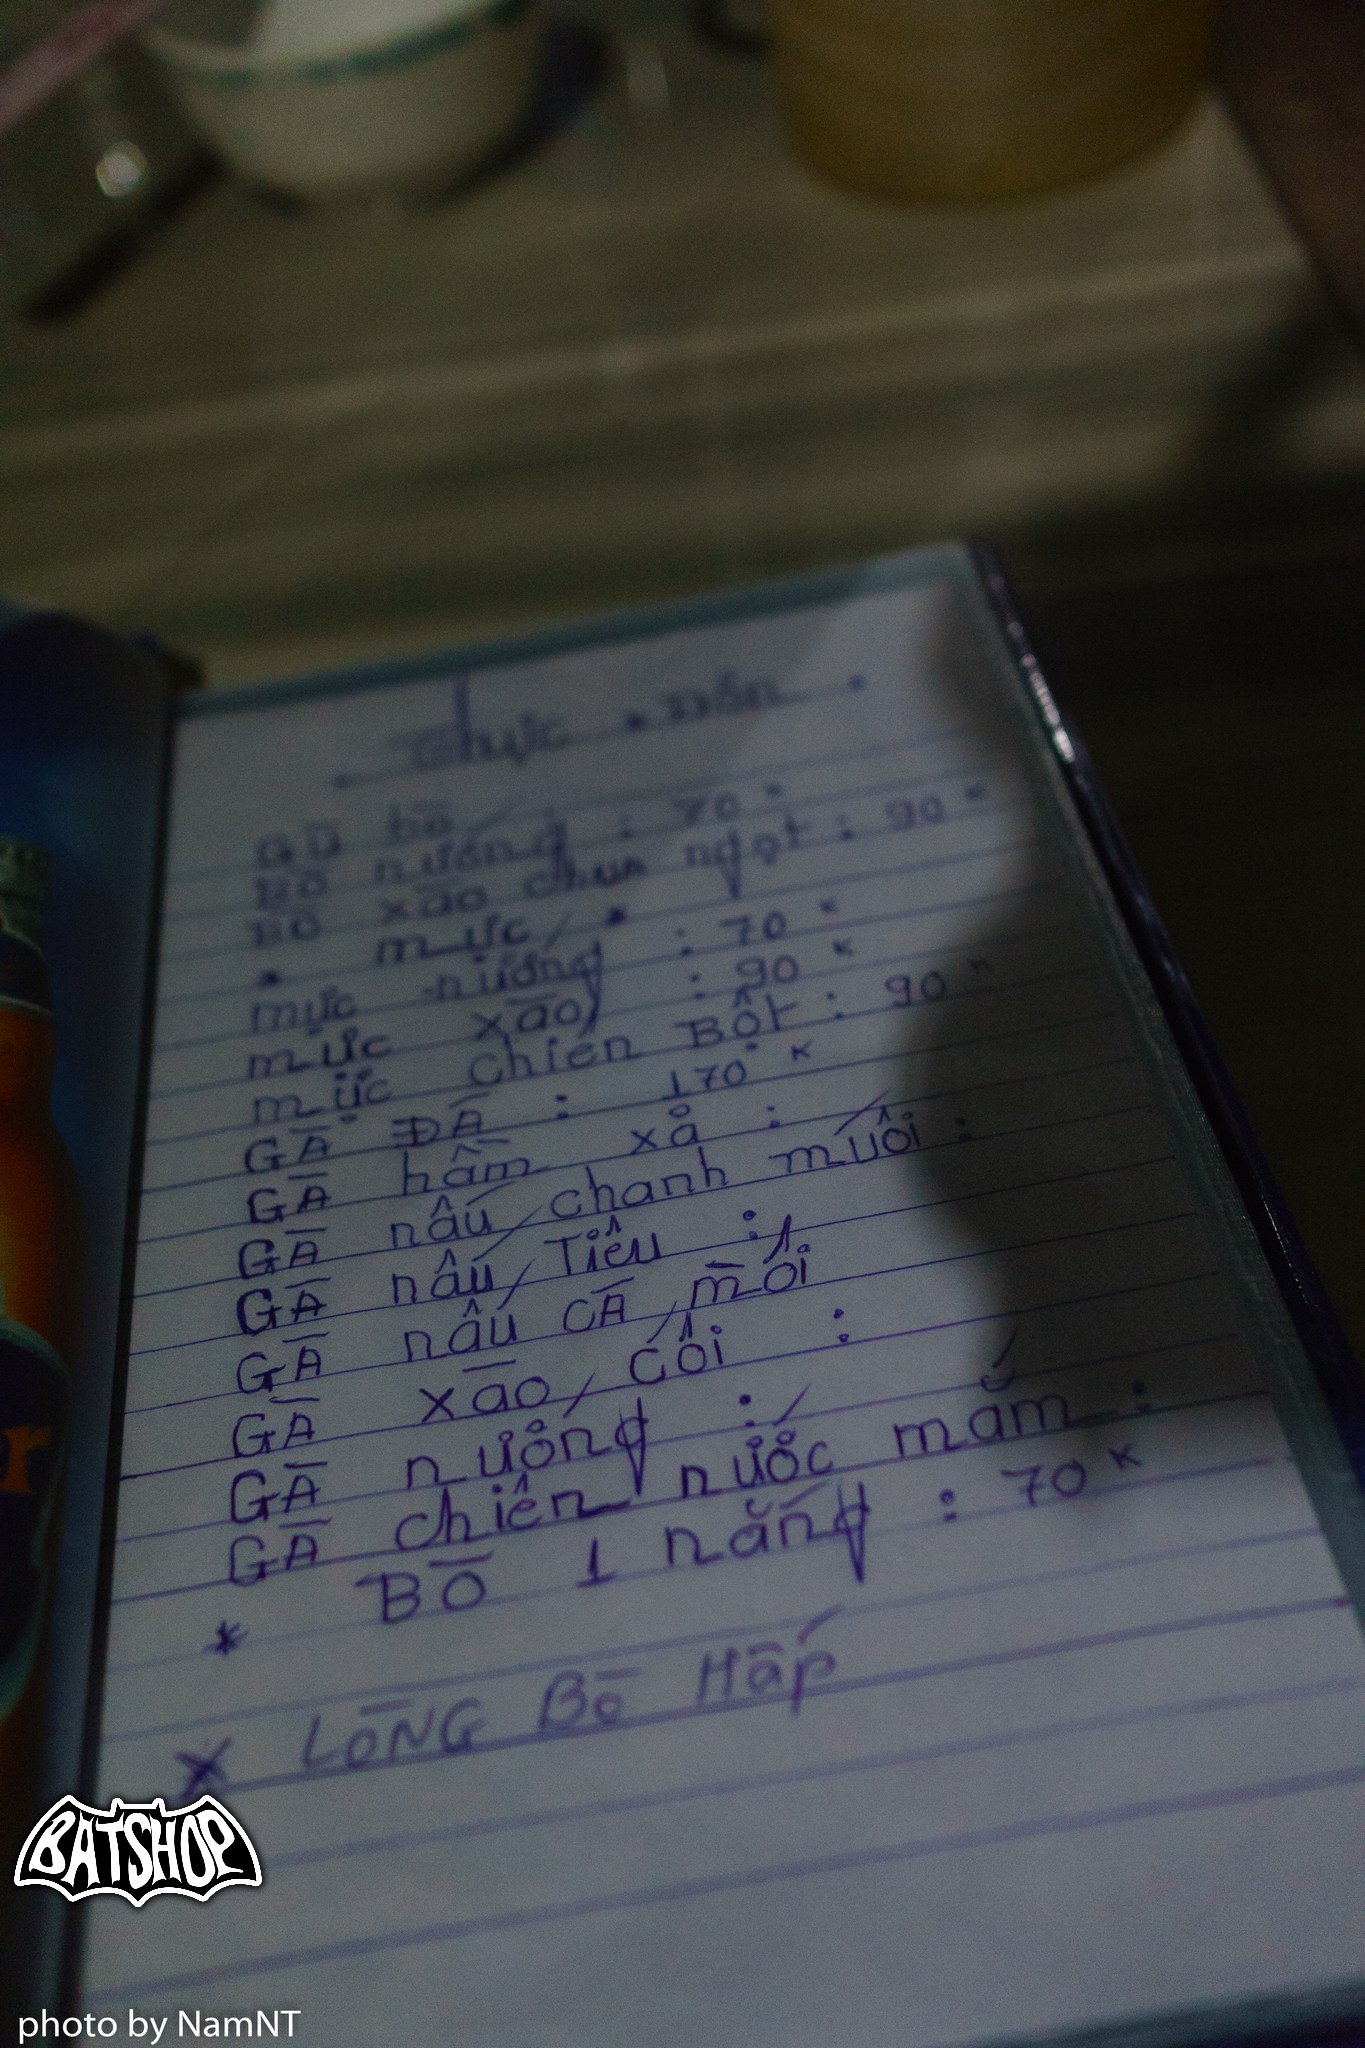 Thực Đơn
Gù bò
Bò nướng : 70 K
Bò xào chua ngọt : 90 K
* mực *
mực nướng : 70 K
mực xào : 90 K
mực chiên Bột : 90 K
GÀ ĐÁ : 170 K
GÀ hầm xả :
GÀ nấu chanh muối :
GÀ nấu Tiêu :
GÀ nấu CÀ mối
GÀ xào cối :
GÀ nướng :
GÀ chiên nước mắm :
* BÒ 1 nắng : 70 K
X LÒNG BÒ HẤP
BATSHOP
photo by NamNT